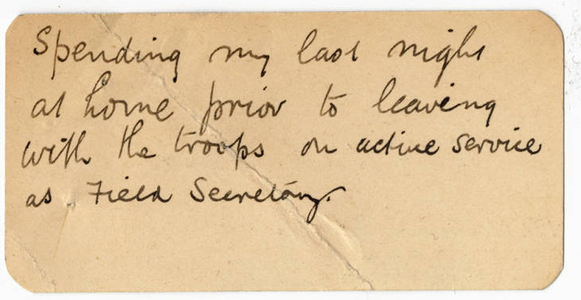 Spending my last night
at home prior to leaving
with the troops on active service
as Field Secretary.